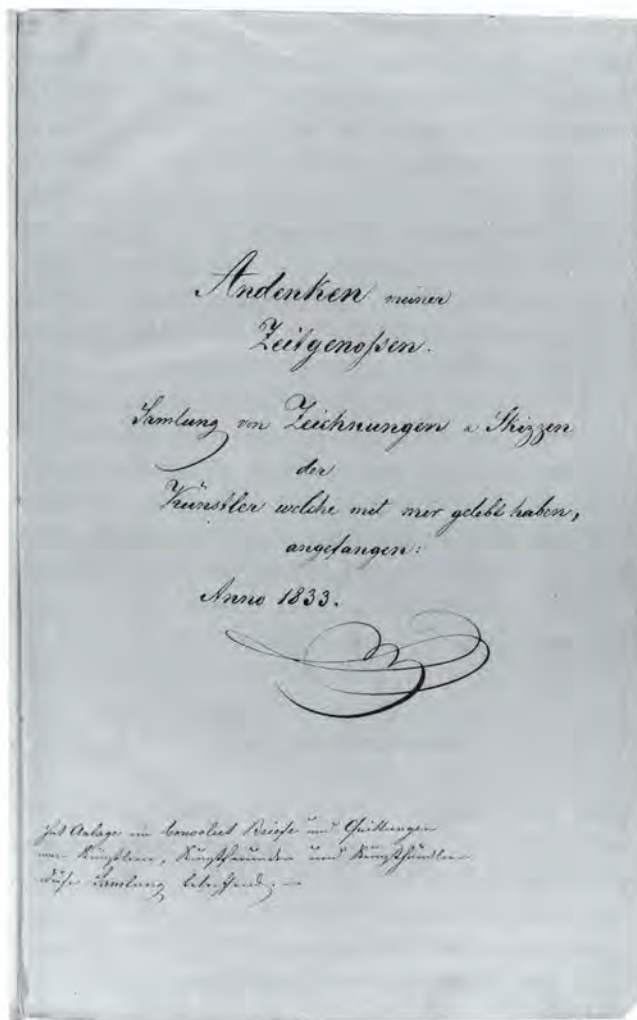 Andenken meiner
Zeitgenoßen.
Samlung von Zeichnungen u Skizzen
der
Künstler welche mit mir gelebt haben,
angefangen:
Anno 1833.
Anlage ein Convolut Briefe und Quittungen
von Künstlern, Kunstfreunden und Kunsthändler
diese Samlung betreffend. —